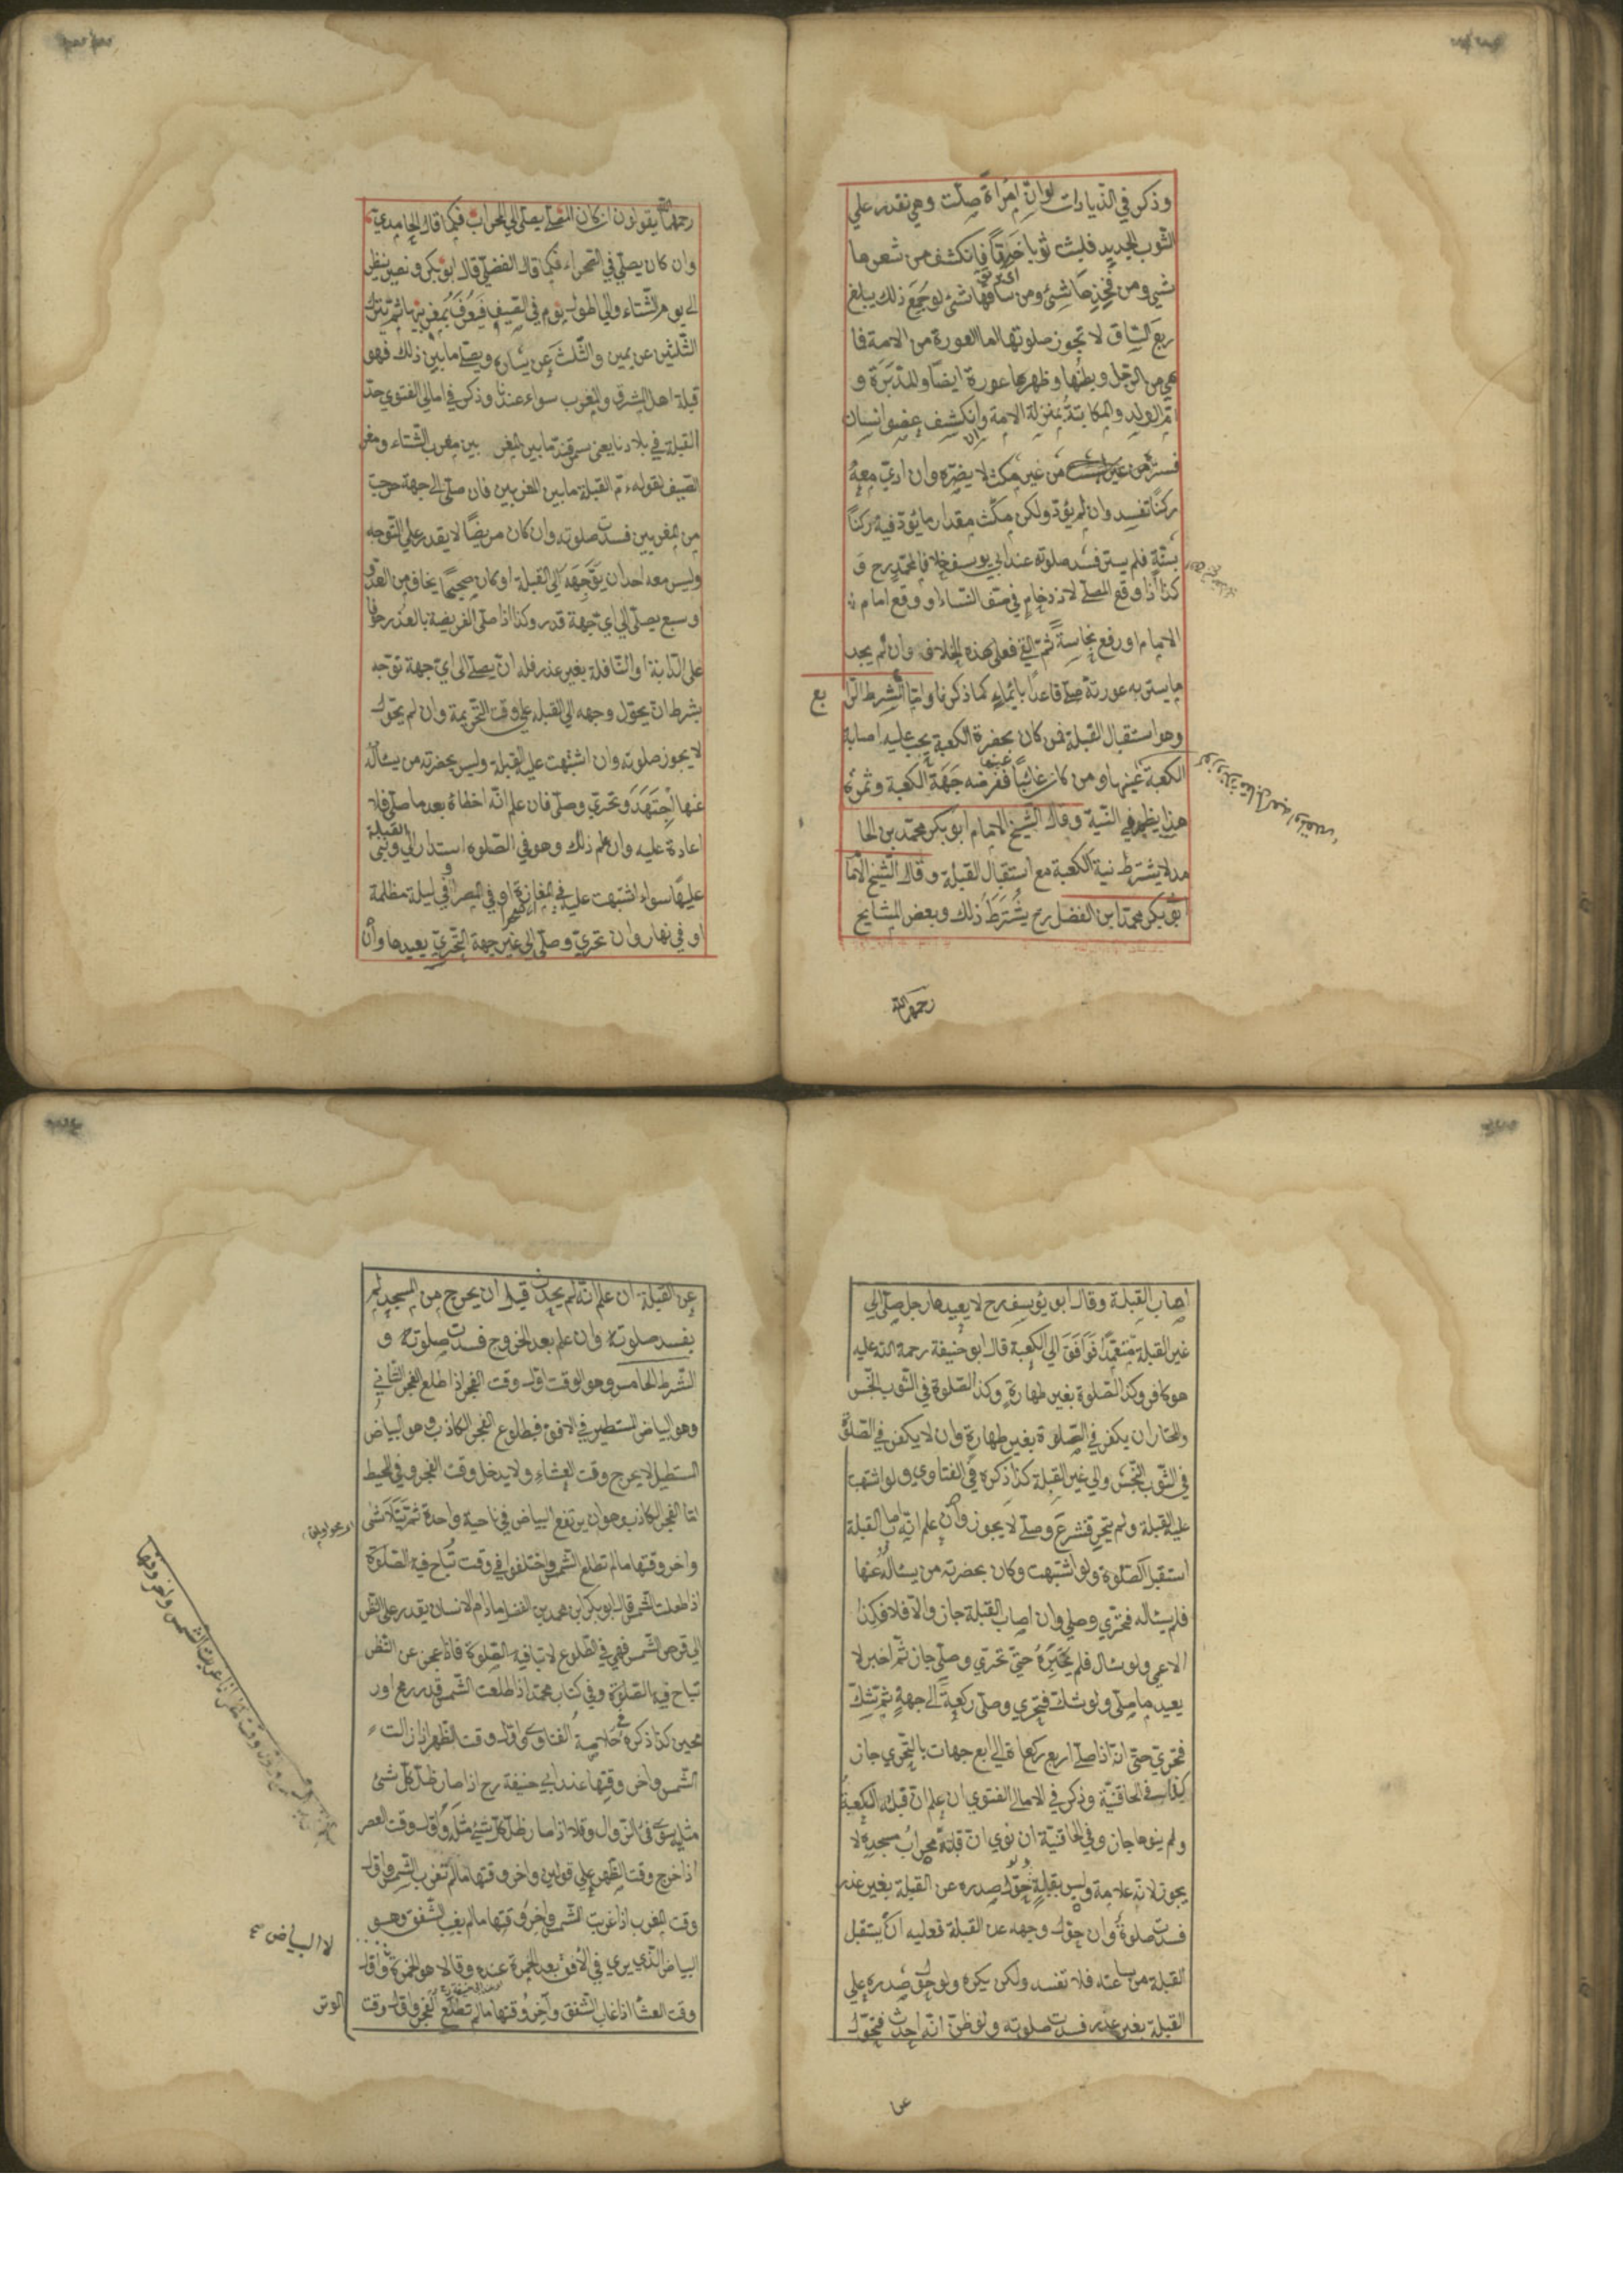 وذكر في الذيادات لو ان امراة صلت وهي تقدر علي
الثوب الجديد فلبست ثوبا خرقا فانكشف من شعرها
شيء ومن فخذها شئ ومن ساقها شئ لو جمع ذلك يبلغ
ربع الساق لا تجوز صلوتها اما العورة من الامة فا
هي من الرجل وبطنها وظهرها عورة ايضا والمدبرة و
ام الولد والمكاتبة بمنزلة الامة وان كشف عضو انسان
فستر من غير مكث لا يضره وان ادي معه
ركنا تفسد وان لم يؤد ولكن مكث مقدار ما يؤد فيه ركنا
بسنة فلم يستر فسد صلوته عند ابي يوسف خلافا لمحمد رح و
كذا اذا وقع المصلي لازدحام في صف النساء او وقع امام
الامام او رفع نجاسة ثم القي فعلي هذه الخلاف وان لم يجد
ما يستر به عورته صلي قاعدا بايماء كما ذكرنا واما الشرط الرا
بع
وهو استقبال القبلة فمن كان بحضرة الكعبة يجب عليه اصابة
الكعبة عينها ومن كان غائبا عنها ففرضه جهة الكعبة وثمرة
هذا يظهر في النية وقال الشيخ الامام ابو بكر محمد بن الحا
مد لا يشترط نية الكعبة مع استقبال القبلة وقال الشيخ الاما
بو بكر محمد ابن الفضل رح يشترط ذلك وبعض المشايخ
رحمهم الله
رحمهم الله يقولون ان كان المصلي يصلي الي المحراب فكما قال الحامدي
وان كان يصلي في الصحراء فكما قال الفضلي قال ابو بكر ونصير ينظر
الي يوم الشتاء والي اطول يوم في الصيف فيعرف بمغربيها ثم يترك
الثلثين عن يمين والثلث عن يساره ويصلي ما بين ذلك فهو
قبلة اهل المشرق والمغرب سواء عندنا وذكر في امالي الفتوي حد
القبلة في بلادنا يعني سمرقند ما بين المغر بين مغرب الشتاء ومغر
الصيف لقوله ءم القبلة ما بين المغربين فان صلي الي جهة خرجت
من المغربين فسدت صلوته وان كان مريضا لا يقدر علي التوجه
وليس معه احد ان يوجهه الي القبلة او كان صحيحا يخاف من العدو
او سبع يصلي الي اي جهة قدر وكذا اذا صلي الفريضة بالعذر
علي الدابة او النافلة بغير عذر فله ان يصلي الي اي جهة توجه
بشرط ان يحول وجهه الي القبلة علي وقت التحريمة وان لم يحول
لا يجوز صلوته وان اشتبهت عليه القبلة وليس بحضرته من يسئاله
عنها اجتهد وتحري وصلي فان علم انه اخطاة بعد ما صلي فلا
اعادة عليه وان علم ذلك وهو في الصلوة استدار الي القبلة وبني
عليها سواء اشتبهت عليه في المفازة او في المصر او في ليلة مظلمة
او في نهار وان تحري وصلي الي غير جهة التحري يعيدها وان
اصاب القبلة وقال ابو يوسف رح لا يعيدها رجل صلي الي
غير القبلة متعمدا فوافق الي الكعبة قال ابو حنيفة رحمة الله عليه
هو كافر وكذا الصلوة بغير طهارة وكذا الصلوة في الثوب النجس
والمختار ان يكفر في الصلوة بغير طهارة وان لا يكفر في الصلوة
في الثوب النجس والي غير القبلة كذا ذكره في الفتاوي ولو اشتبهت
عليه القبلة ولم يتحر فشرع وصلي لا يجوز وان علم انه اصاب القبلة
استقبل الصلوة ولو اشتبهت وكان بحضرته من يسئاله عنها
فلم يسئاله فتحري وصلي وان اصاب القبلة جاز والا فلا فكذا
الاعمي ولو سئال فلم يخبره حتي تحري وصلي جاز ثم اخبر لا
يعيد ما صلي ولو شك فتحري وصلي ركعة الي جهة ثم شك
فتحري حتي انه اذا صلي اربع ركعات الي اربع جهات بالتحري جاز
كذا في الخاقنية وذكر في الامالي الفتوي ان علم ان قبلة الكعبة
ولم ينوها جاز وفي الخاقنية ان نوي ان قبلة محراب مسجده لا
يجوز لانه علامة وليس بقبلة ولو حول صدره عن القبلة بغير عذر
فسدت صلوة وان حول وجهه عن القبلة فعليه ان يستقبل
القبلة من ساعته فلا تفسد ولكن يكره ولو حول صدره علي
القبلة بغير عذر فسدت صلوته ولو ظن انه احدث فتحول
عن
عن القبلة ان علم انه لم يحدث قبل ان يخرج من المسجد لم
يفسد صلوته وان علم بعد الخروج فسدت صلوته و
الشرط الخامس وهو الوقت اول وقت الفجر اذا طلع الفجر الثاني
وهو البياض المستطير في الافق فبطلوع الفجر الكاذب وهو البياض
المستطيل لا يخرج وقت العشاء ولا يدخل وقت الفجر وفي المحيط
اما الفجر الكاذب وهو ان يرتفع البياض في ناحية واحدة ثم يتلاشي
واخر وقتها ما لم تطلع الشمس واختلفوا في وقت تباح فيه الصلوة
اذا طعلت الشمس قال ابو بكر ابن محمد بن الفضل ما دام الانسان يقدر علي النظر
الي قرص الشمس فهي في الطلوع لا تباح فيه الصلوة فاذا عجز عن النظر
تباح فيه الصلوة وفي كتاب محمد اذا طلعت الشمس قدر رمح او ر
محين كذا ذكره في خلاصة الفتاوي اول وقت الظهر اذا زالت
الشمس واخر وقتها عند ابي حنيفة رح اذا صار ظل كل شئ
مثليه سوي فئ الزوال وقالا اذا صار ظل كل شئ مثله واول وقت العصر
اذا خرج وقت الظهر علي قولين واخر وقتها ما لم تغرب الشمس واول
وقت المغرب اذا غربت الشمس واخر وقتها ما لم يغب الشفق وهو
لا البياض
البياض الذي يري في الافق بعد الحمرة عنده وقالا هو الحمرة واول
وقت العشا اذا غاب الشفق واخر وقتها ما لم تطلع الفجر واول وقت
الوتر